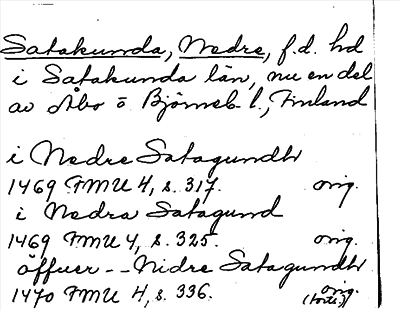 Satakunda, Nedre, f.d. hd
i Satakunda län, nu en del
av Åbo o Björneb l., Finland
i Nedre Satagundh
1469 FMU 4, s. 317. orig.
i Nedra Satagund
1469 FMU 4, s. 325. orig.
öffuer -- Nidre Satagundh
1470 FMU 4, s. 336. orig.